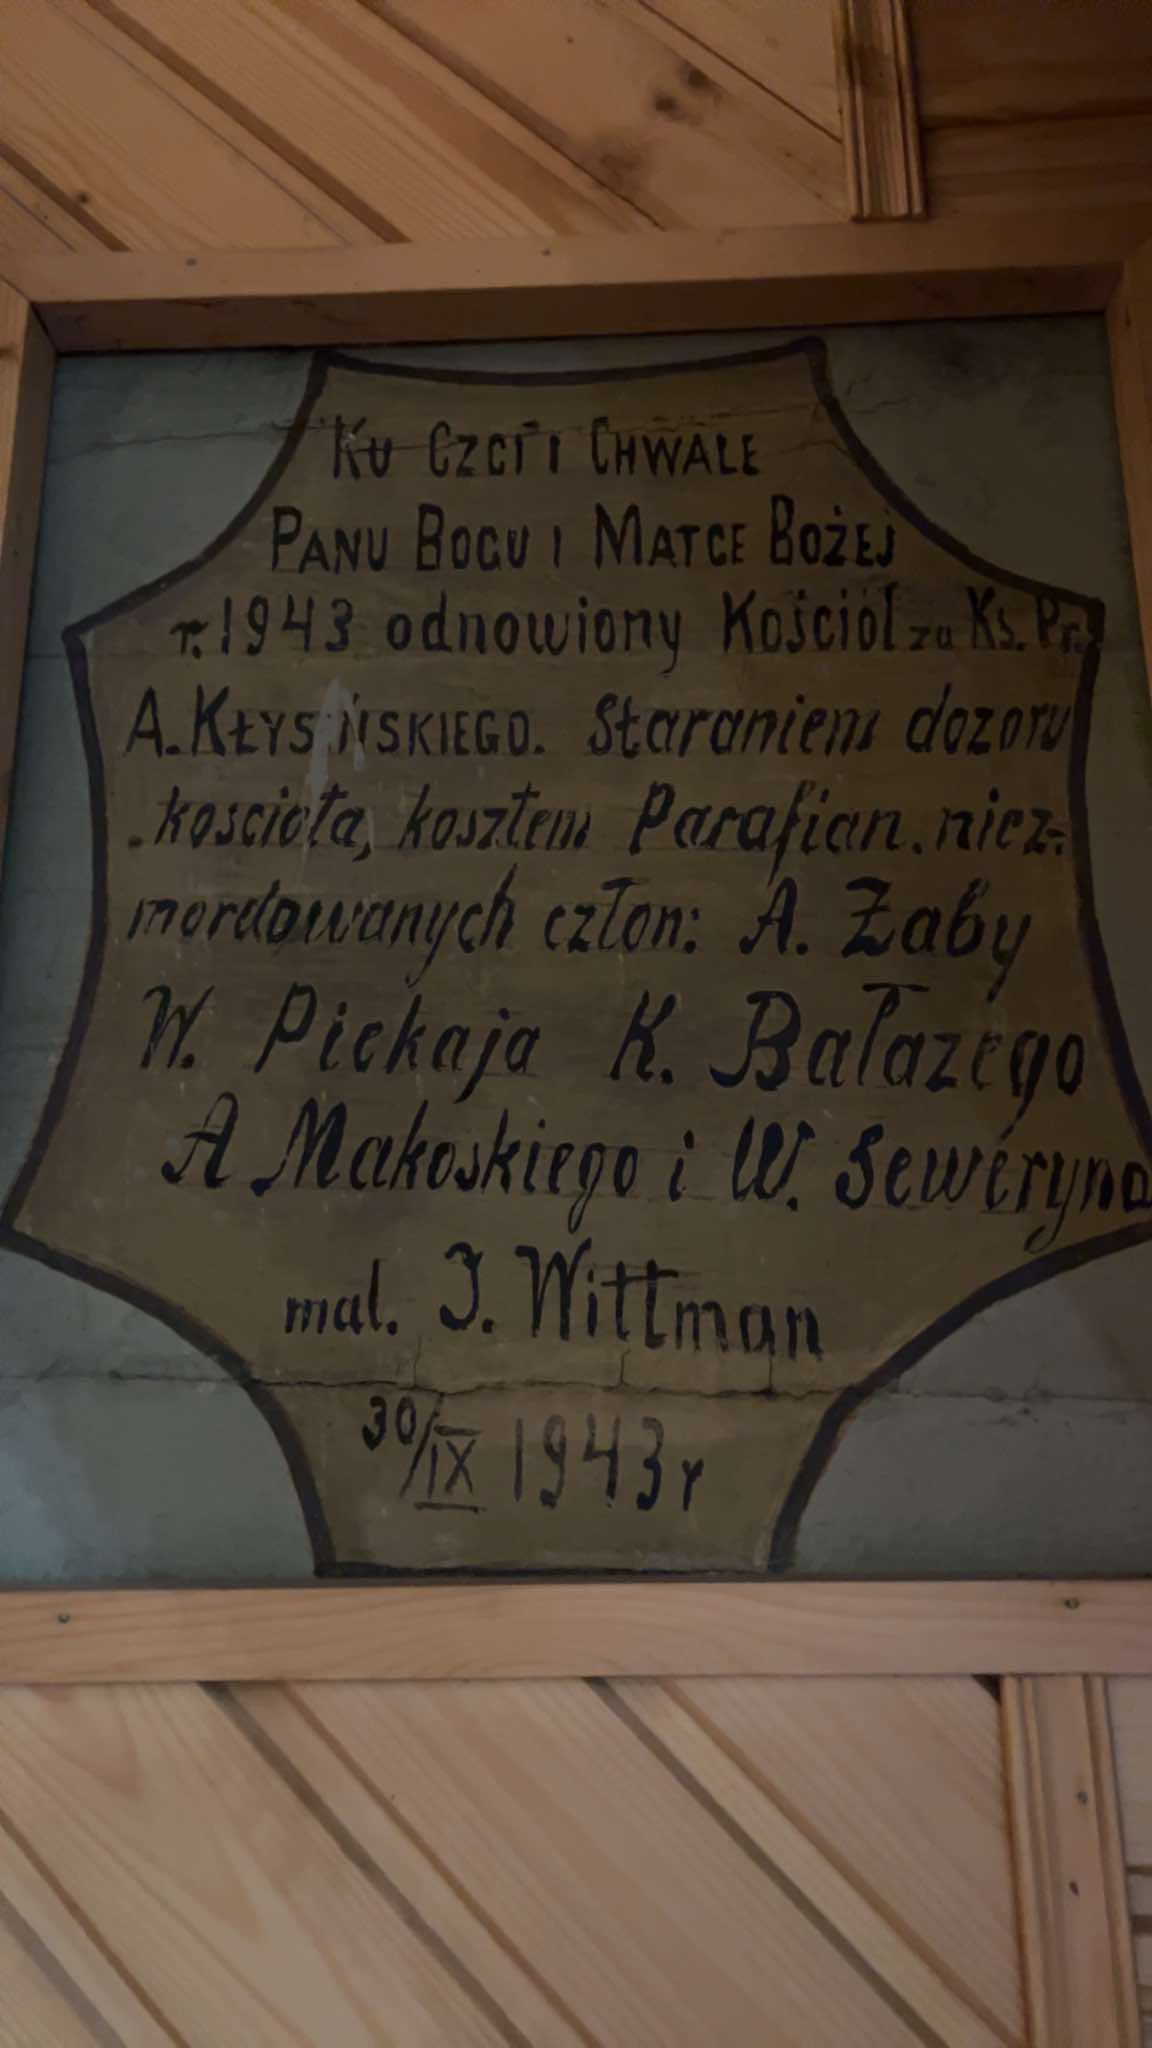 KU CZCI I CHWALE
PANU BOGU I MATCE BOŻEJ
r. 1943 odnowiony Kościół za Ks. Pr.
A. KŁYSIŃSKIEGO. Staraniem dozoru
kościoła, kosztem Parafian. niez-
mordowanych człon: A. Żaby
W. Piekaja K. Bałazego
A Makoskiego i W. Seweryna
mal. J. Wittman
30/IX 1943 r